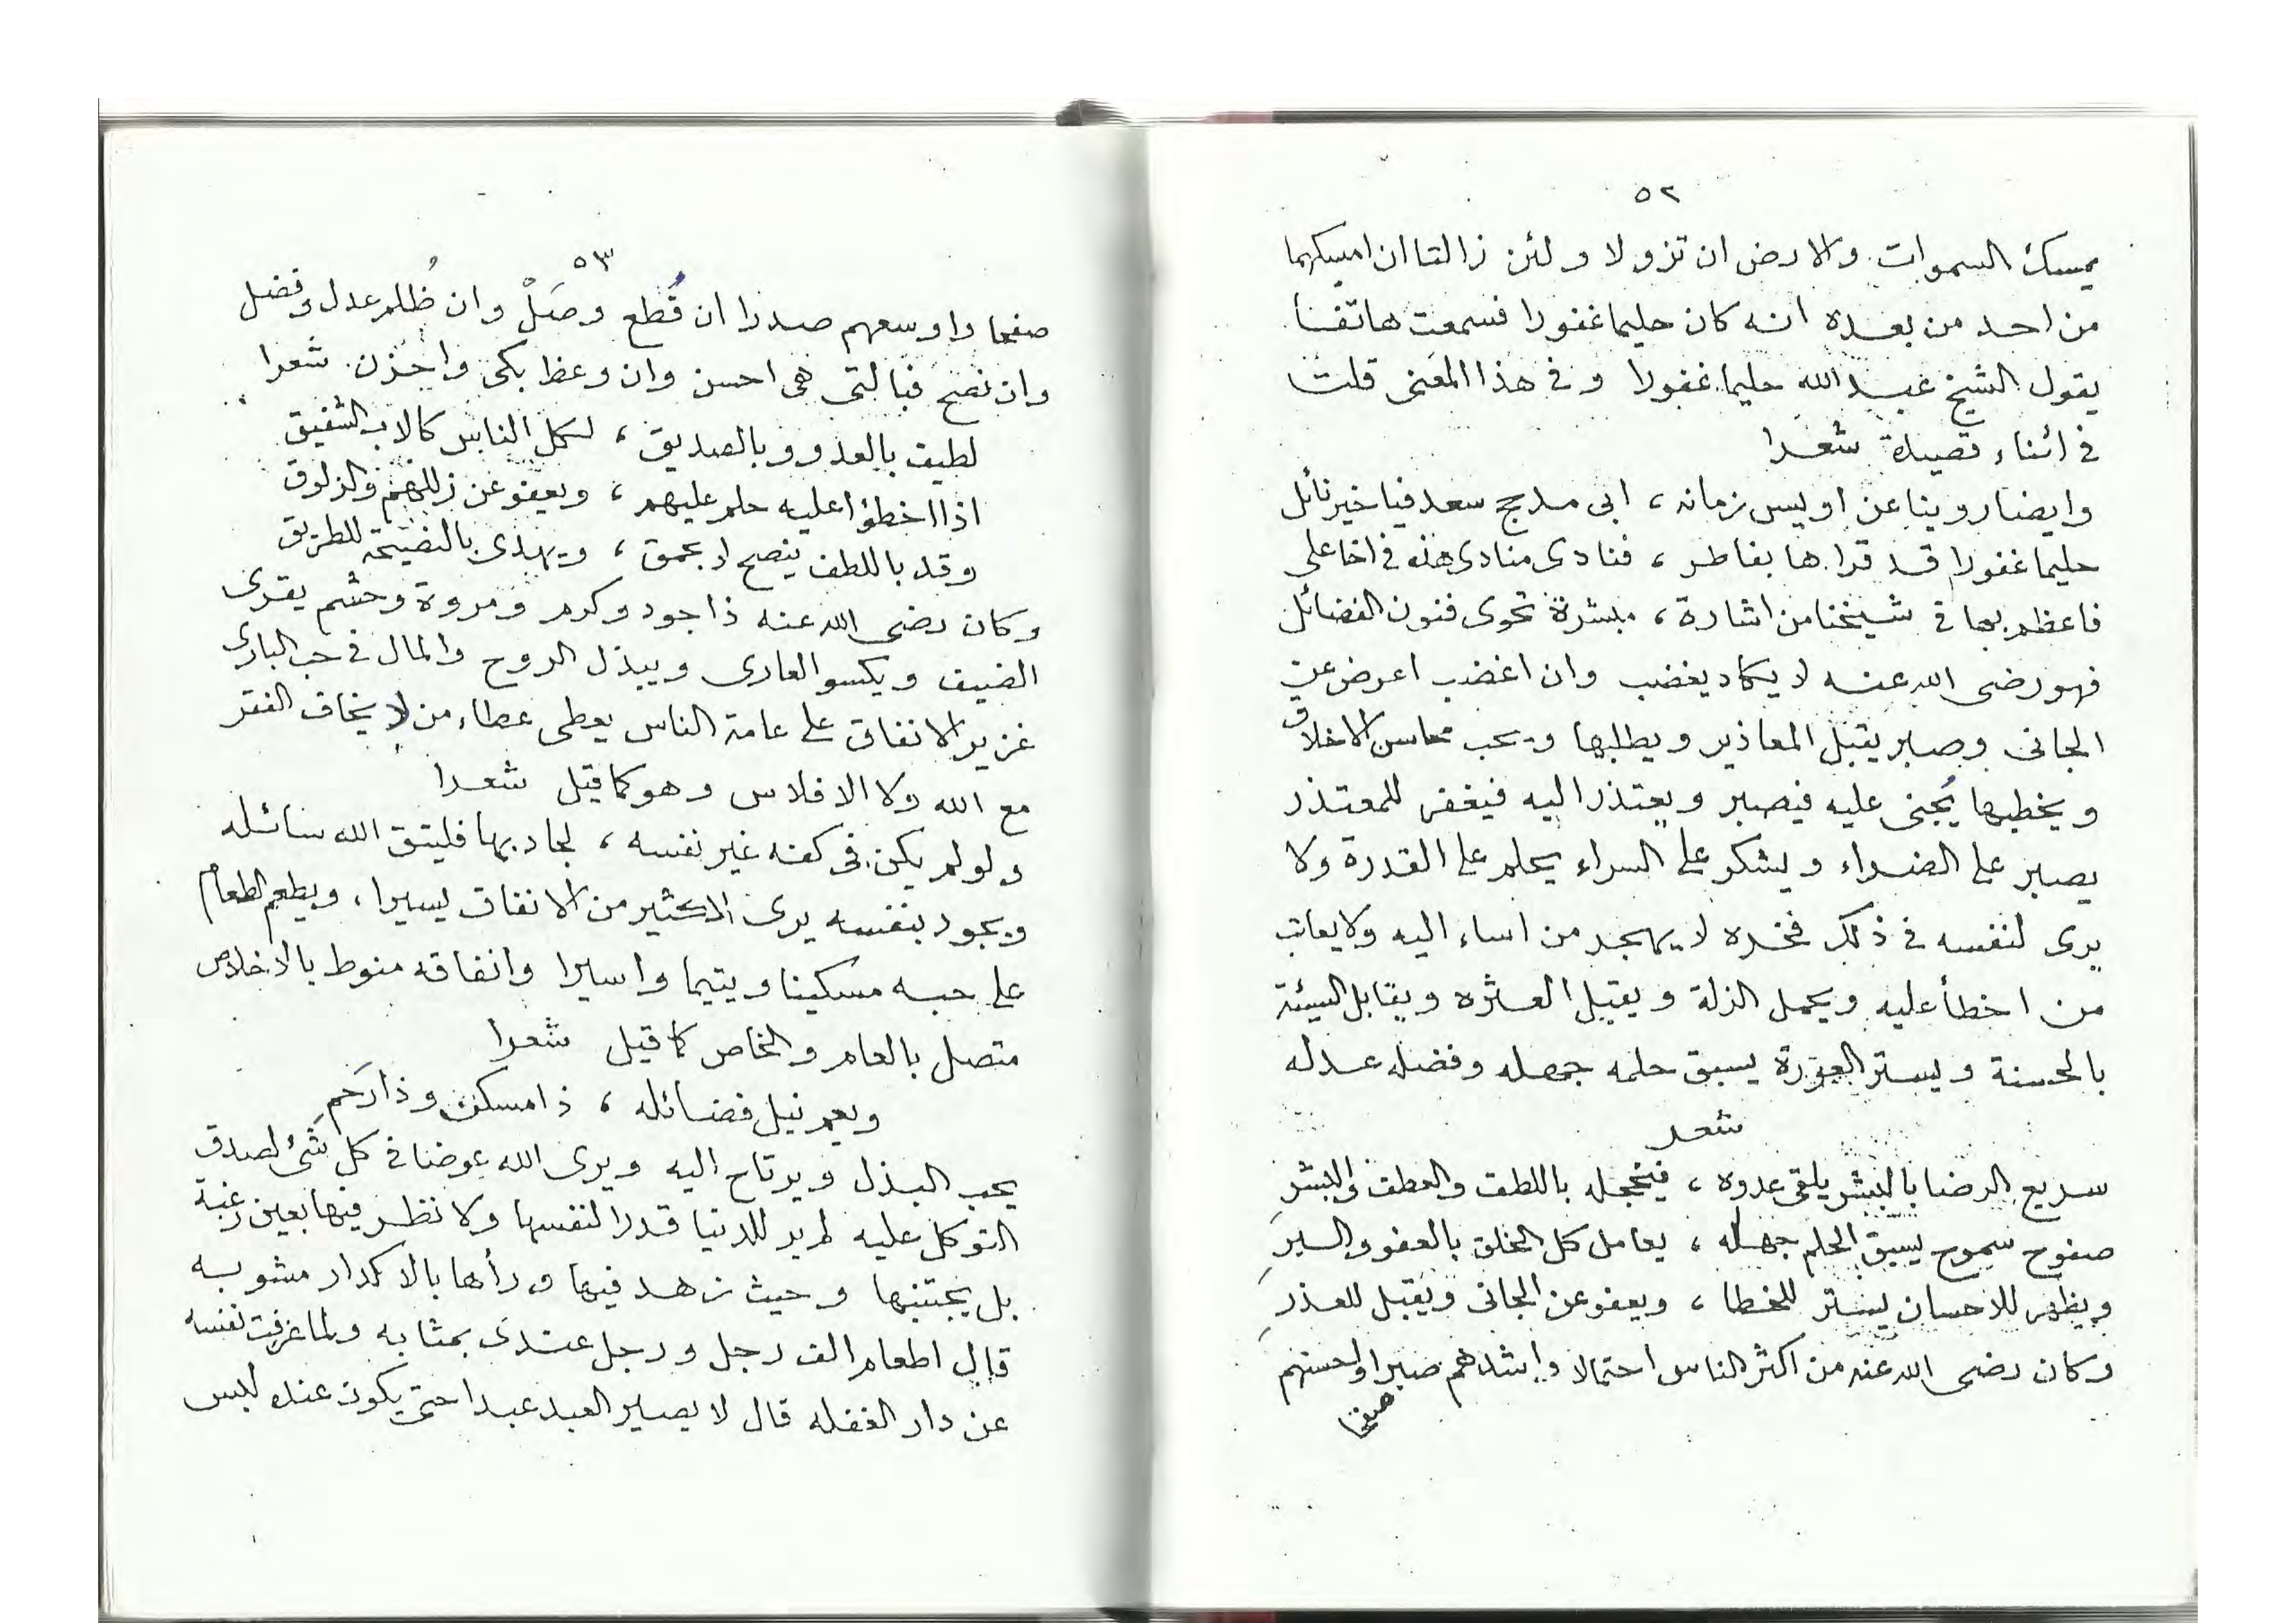 ٥٢
يمسك السموات والارض ان تزولا ولئن زالتا ان امسكهما
من احد من بعده انه كان حليما غفورا فسمعت هاتفا
يقول الشيخ عبد الله حليما غفورا وفي هذا المعنى قلت
في اثناء قصيدة شعرا
وايضا روينا عن اويس زمانه ، ابى مدجج سعد فيا خير نائل
حليما غفورا قد قراها بفاطر ، فنادى منادى هذه في اخا على
فاعظم بها في شيخنا من اشارة ، مبشرة تحوى فنون الفضائل
فهو رضى الله عنه لا يكاد يغضب وان اغضب اعرض عن
الجانى وصبر يقبل المعاذير ويطلبها ويحب محاسن الاخلاق
ويخطبها يُجنى عليه فيصبر ويعتذر اليه فيغفر للمعتذر
يصبر على الضراء ويشكر على السراء يحلم على القدرة ولا
يرى لنفسه في ذلك فخره لا يهجر من اساء اليه ولا يعاتب
من اخطأ عليه ويحمل الزلة ويقيل العثره ويقابل السيئة
بالحسنة ويستر العورة يسبق حلمه جهله وفضله عدله
شعر
سريع الرضا بالبشر يلقى عدوه ، فيخجله باللطف والعطف والبشرِ
صفوح سموح يسبق الحلم جهله ، يعامل كل الخلق بالعفو والسترِ
ويظهر للاحسان يستر للخطا ، ويعفو عن الجانى ويقبل للعذرِ
وكان رضى الله عنه من اكثر الناس احتمالا واشدهم صبرا واحسنهم
صفحا
٥٣
صفحا واوسعهم صدرا ان قُطع وصَلْ وان ظُلم عدل وفضل
وان نصح فبالتى هى احسن وان وعظ بكى واحزن شعرا
لطيف بالعدو وبالصديق ، لكل الناس كالاب الشفيق
اذا اخطؤا عليه حلم عليهم ، ويعفو عن زللهم والزلوق
وقد باللطف ينصح لا بحمق ، ويهدى بالنصيحة للطريق
وكان رضى الله عنه ذا جود وكرم ومروة وحشم يقرى
الضيف ويكسو العارى ويبذل الروح والمال في حب البارى
غزير الانفاق على عامة الناس يعطى عطاء من لا يخاف الفقر
مع الله ولا الافلاس وهو كما قيل شعرا
ولو لم يكن فى كفه غير نفسه ، لجاد بها فليتق الله سائله
ويجود بنفسه يرى الاكثير من الانفاق يسيرا ، ويطعم الطعام
على حبه مسكينا ويتيما واسيرا وانفاقه منوط بالاخلاص
متصل بالعام والخاص كما قيل شعرا
ويعم نيل فضائله ، ذا مسكن وذا رَحمِ
يحب البذل ويرتاح اليه ويرى الله عوضا في كل شئ لصدق
التوكل عليه لم ير للدنيا قدرا لنفسها ولا نظر فيها بعين رغبة
بل يجتنبها وحيث زهد فيها ورأها بالاكدار مشوبه
قال اطعام الف رجل ورجل عندى بمثابه ولما عزفت نفسه
عن دار الغفله قال لا يصير العبد عبدا حتى يكون عنده لبس